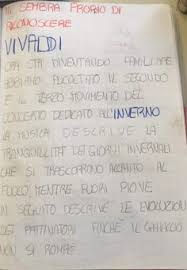 MI SEMBRA PROPRIO DI
RICONOSCERE
VIVALDI
ORA STA DIVENTANDO FAMILIARE
ABBIAMO ASCOLTATO IL SECONDO
E IL TERZO MOVIMENTO DEL
CONCERTO DEDICATO ALL'INVERNO
LA MUSICA DESCRIVE LA
TRANQUILLITÀ DEI GIORNI INVERNALI
CHE SI TRASCORRONO ACCANTO AL
FUOCO, MENTRE FUORI PIOVE
IN SEGUITO DESCRIVE LE EVOLUZIONI
DEI PATTINATORI FINCHÉ IL GHIACCIO
NON SI ROMPE